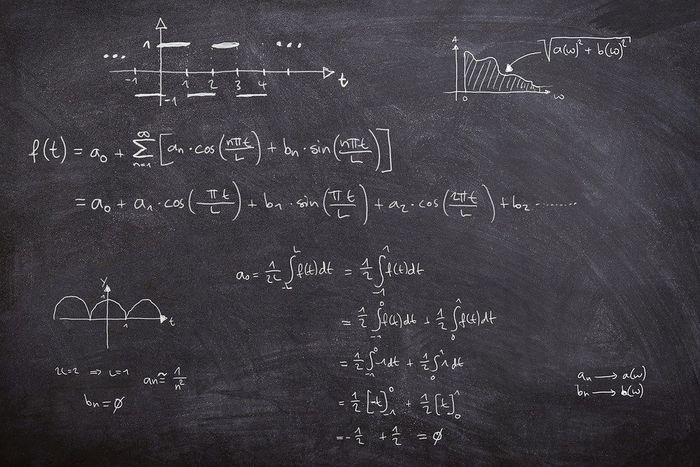 1
t
-1 1 2 3 4
-1
A
√a(ω)² + b(ω)²
0 ω
f(t) = a₀ + ∞∑n=1 [aₙ·cos(nπt/L) + bₙ·sin(nπt/L)]
= a₀ + a₁·cos(πt/L) + b₁·sin(πt/L) + a₂·cos(2πt/L) + b₂ ........
a₀ = 1/2L ∫f(t)dt = 1/2 ∫f(t)dt
L -L 1 -1
= 1/2 ∫f(t)dt + 1/2 ∫f(t)dt
0 -1 1 0
= 1/2 ∫-1dt + 1/2 ∫1dt
0 -1 1 0
= 1/2 [-t] + 1/2 [t]
0 -1 1 0
= -1/2 + 1/2 = Ø
y
1
1 t
2L=2 ⇒ L=1 aₙ≅ 1/n²
bₙ = Ø
aₙ → a(ω)
bₙ → b(ω)